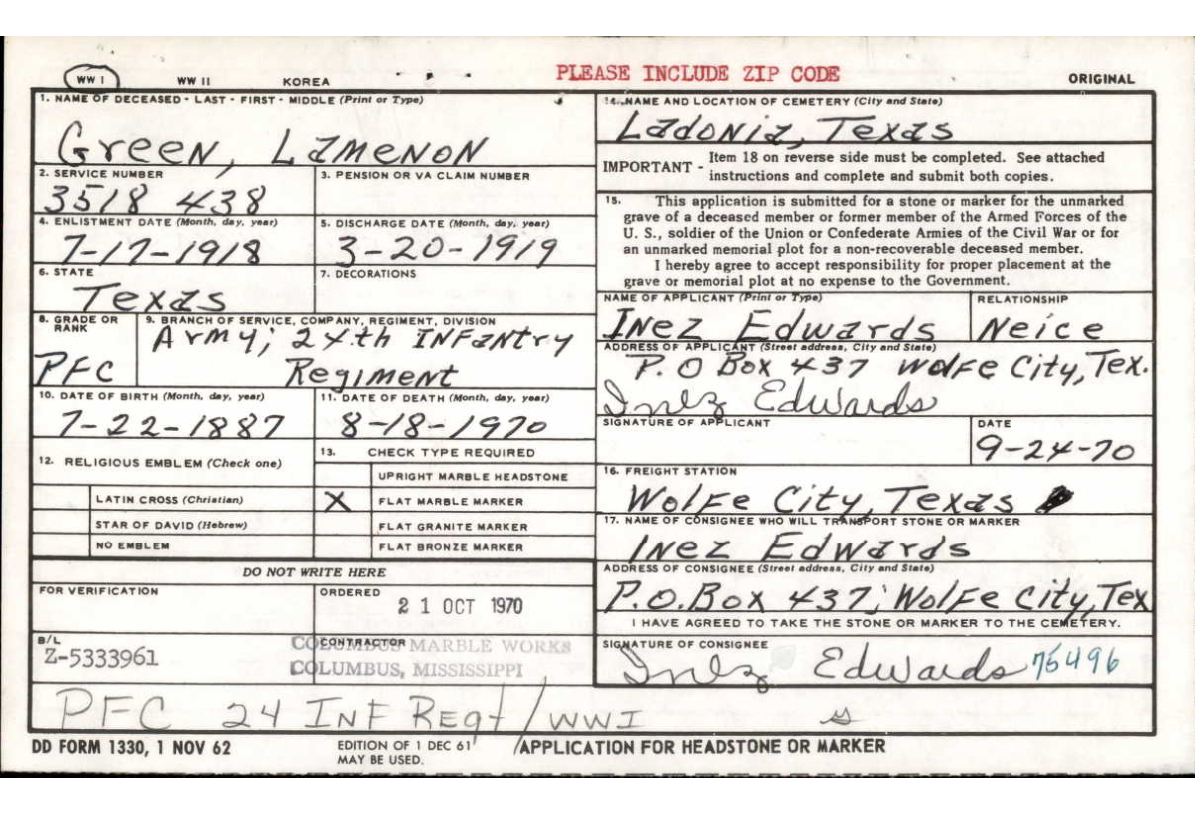 WW I WW II KOREA PLEASE INCLUDE ZIP CODE ORIGINAL
1. NAME OF DECEASED - LAST - FIRST - MIDDLE (Print or Type)
Green, Lamenon
2. SERVICE NUMBER
3518 438
3. PENSION OR VA CLAIM NUMBER
4. ENLISTMENT DATE (Month, day, year)
7-17-1918
5. DISCHARGE DATE (Month, day, year)
3-20-1919
6. STATE
Texas
7. DECORATIONS
8. GRADE OR
RANK
PFC
9. BRANCH OF SERVICE, COMPANY, REGIMENT, DIVISION
Army; 24th Infantry
Regiment
10. DATE OF BIRTH (Month, day, year)
7-22-1887
11. DATE OF DEATH (Month, day, year)
8-18-1970
12. RELIGIOUS EMBLEM (Check one)
LATIN CROSS (Christian)
STAR OF DAVID (Hebrew)
NO EMBLEM
13. CHECK TYPE REQUIRED
UPRIGHT MARBLE HEADSTONE
X FLAT MARBLE MARKER
FLAT GRANITE MARKER
FLAT BRONZE MARKER
DO NOT WRITE HERE
FOR VERIFICATION
ORDERED
21 OCT 1970
B/L
Z-5333961
CONTRACTOR
COLUMBUS MARBLE WORKS
COLUMBUS, MISSISSIPPI
14. NAME AND LOCATION OF CEMETERY (City and State)
Ladonia, Texas
IMPORTANT - Item 18 on reverse side must be completed. See attached
instructions and complete and submit both copies.
15. This application is submitted for a stone or marker for the unmarked
grave of a deceased member or former member of the Armed Forces of the
U. S., soldier of the Union or Confederate Armies of the Civil War or for
an unmarked memorial plot for a non-recoverable deceased member.
I hereby agree to accept responsibility for proper placement at the
grave or memorial plot at no expense to the Government.
NAME OF APPLICANT (Print or Type)
Inez Edwards
RELATIONSHIP
Neice
ADDRESS OF APPLICANT (Street address, City and State)
P. O Box 437 Wolfe City, Tex.
Inez Edwards
SIGNATURE OF APPLICANT
DATE
9-24-70
16. FREIGHT STATION
Wolfe City, Texas
17. NAME OF CONSIGNEE WHO WILL TRANSPORT STONE OR MARKER
Inez Edwards
ADDRESS OF CONSIGNEE (Street address, City and State)
P.O. Box 437; Wolfe City, Tex
I HAVE AGREED TO TAKE THE STONE OR MARKER TO THE CEMETERY.
SIGNATURE OF CONSIGNEE
Inez Edwards 75496
PFC 24 INF REgt/WWI
DD FORM 1330, 1 NOV 62 EDITION OF 1 DEC 61 APPLICATION FOR HEADSTONE OR MARKER
MAY BE USED.